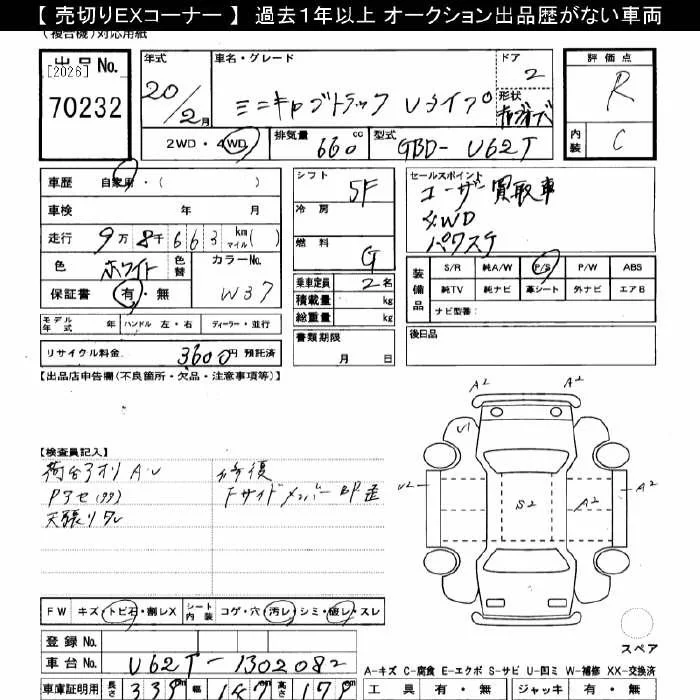 【 売切りEXコーナー 】 過去１年以上 オークション出品歴がない車両
(複合機)対応用紙
出品No.
[2026]
70232
年式
20/2月
車名・グレード
ミニキャブトラック Vタイプ
ドア
2
形状
評価点
R
内装
C
2WD・4WD
排気量
660 cc
型式
GBD-U62T
車歴 自家用・( )
車検 年 月
走行 9万 8千 663 km マイル( )
色 ホワイト 色替
カラーNo.
W37
保証書 有・無
シフト
5F
冷房
燃料
G
乗車定員 2名
積載量 kg
総重量 kg
書類期限
月 日
セールスポイント
ユーザー買取車
4WD
パワステ
装備品
S/R 純A/W P/S P/W ABS
純TV 純ナビ 革シート 外ナビ エアB
ナビ型番:
後日品
モデル年式 年 ハンドル 左・右 ディーラー・並行
リサイクル料金 3600円 預託済
【出品店申告欄(不良箇所・欠品・注意事項等)】
【検査員記入】
荷台アオリ A・U
Pアセ(99)
天張りワレ
修復
FサイドメンバーBP歪
A2 A2
U1
U2 S2 A2 A2
FW キズ・トビ石・割レX シート内装 コゲ・穴・汚レ・シミ・破レ・スレ
スペア
登録No.
車台No. U62T-1302082
A-キズ C-腐食 E-エクボ S-サビ U-凹ミ W-補修 XX-交換済
車庫証明用 長さ 339cm 幅 147 高さ 178cm
工具 有・無 ジャッキ 有・無